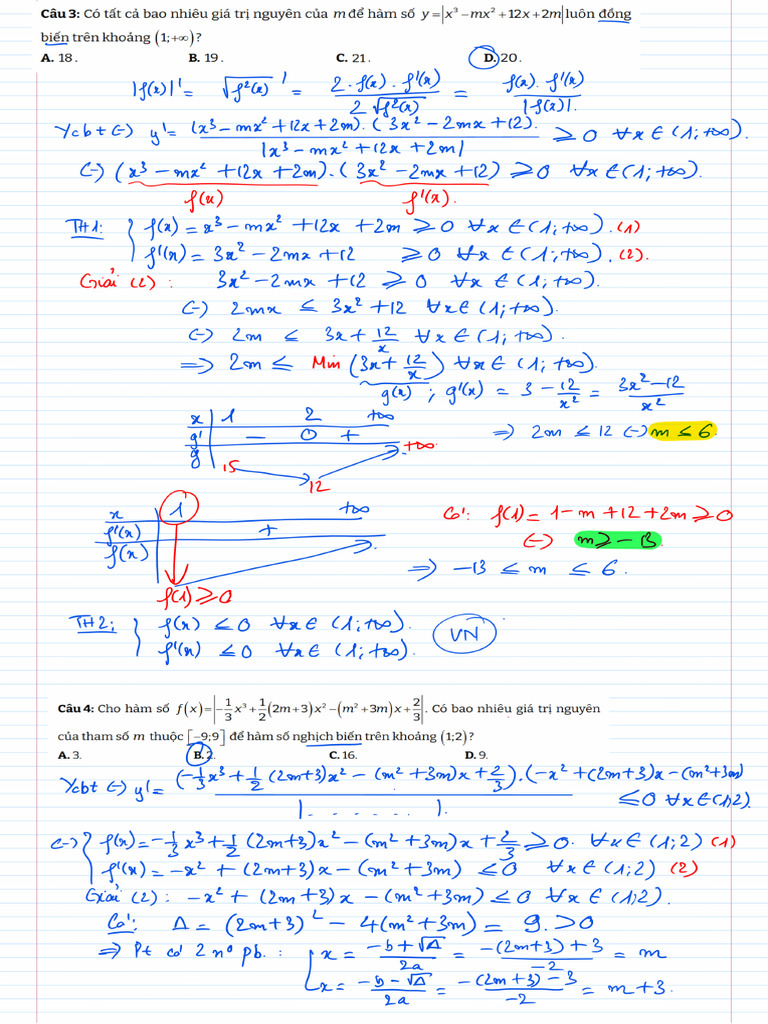 Câu 3: Có tất cả bao nhiêu giá trị nguyên của m để hàm số y = |x³ − mx² + 12x + 2m| luôn đồng
biến trên khoảng (1;+∞)?
A. 18. B. 19. C. 21. D. 20.
|f(x)|' = √f²(x) ' = 2·f(x)·f'(x) / 2√f²(x) = f(x)·f'(x) / |f(x)|.
Ycbt (-) y' = (x³ − mx² + 12x + 2m).(3x² − 2mx + 12). / |x³ − mx² + 12x + 2m| ≥ 0 ∀x ∈ (1; +∞).
(-) (x³ − mx² + 12x + 2m).(3x² − 2mx + 12) ≥ 0 ∀x ∈ (1; +∞).
f(x) f'(x).
TH1: { f(x) = x³ − mx² + 12x + 2m ≥ 0 ∀x ∈ (1; +∞). (1)
f'(x) = 3x² − 2mx + 12 ≥ 0 ∀x ∈ (1; +∞). (2).
Giải (2): 3x² − 2mx + 12 ≥ 0 ∀x ∈ (1; +∞).
(-) 2mx ≤ 3x² + 12 ∀x ∈ (1; +∞).
(-) 2m ≤ 3x + 12/x ∀x ∈ (1; +∞).
=> 2m ≤ Min (3x + 12/x) ∀x ∈ (1; +∞).
g(x) ; g'(x) = 3 − 12/x² = 3x² − 12 / x²
x 1 2 +∞
g' − 0 + => 2m ≤ 12 (-) m ≤ 6.
g 15 12 +∞
x 1 +∞ Có: f(1) = 1 − m + 12 + 2m ≥ 0
f'(x) + (-) m ≥ −13.
f(x) => −13 ≤ m ≤ 6.
f(1) ≥ 0
TH2: { f(x) ≤ 0 ∀x ∈ (1; +∞). VN
f'(x) ≤ 0 ∀x ∈ (1; +∞).
Câu 4: Cho hàm số f(x) = |−1/3 x³ + 1/2 (2m+3)x² − (m²+3m)x + 2/3|. Có bao nhiêu giá trị nguyên
của tham số m thuộc [−9;9] để hàm số nghịch biến trên khoảng (1;2)?
A. 3. B. 2. C. 16. D. 9.
Ycbt (-) y' = (−1/3 x³ + 1/2 (2m+3)x² − (m²+3m)x + 2/3).(−x² + (2m+3)x − (m²+3m) / |.......|. ≤ 0 ∀x ∈ (1,2).
(-) { f(x) = −1/3 x³ + 1/2 (2m+3)x² − (m²+3m)x + 2/3 ≥ 0. ∀x ∈ (1;2) (1)
f'(x) = −x² + (2m+3)x − (m²+3m) ≤ 0 ∀x ∈ (1;2) (2)
Giải (2): −x² + (2m+3)x − (m²+3m) ≤ 0 ∀x ∈ (1,2).
Có: Δ = (2m+3)² − 4(m²+3m) = 9. > 0
=> Pt có 2 nº pb.: [ x = −b+√Δ / 2a = −(2m+3)+3 / −2 = m
x = −b−√Δ / 2a = −(2m+3)−3 / −2 = m+3.